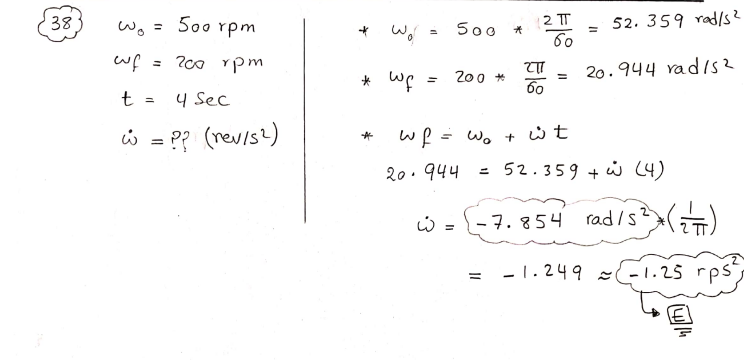 38
ω₀ = 500 rpm
ωf = 200 rpm
t = 4 Sec
ω̇ = ?? (rev/s²)
* ω₀ = 500 * 2π/60 = 52.359 rad/s²
* ωf = 200 * 2π/60 = 20.944 rad/s²
* ωf = ω₀ + ω̇ t
20.944 = 52.359 + ω̇ (4)
ω̇ = -7.854 rad/s² * (1/2π)
= -1.249 ≈ -1.25 rps²
E